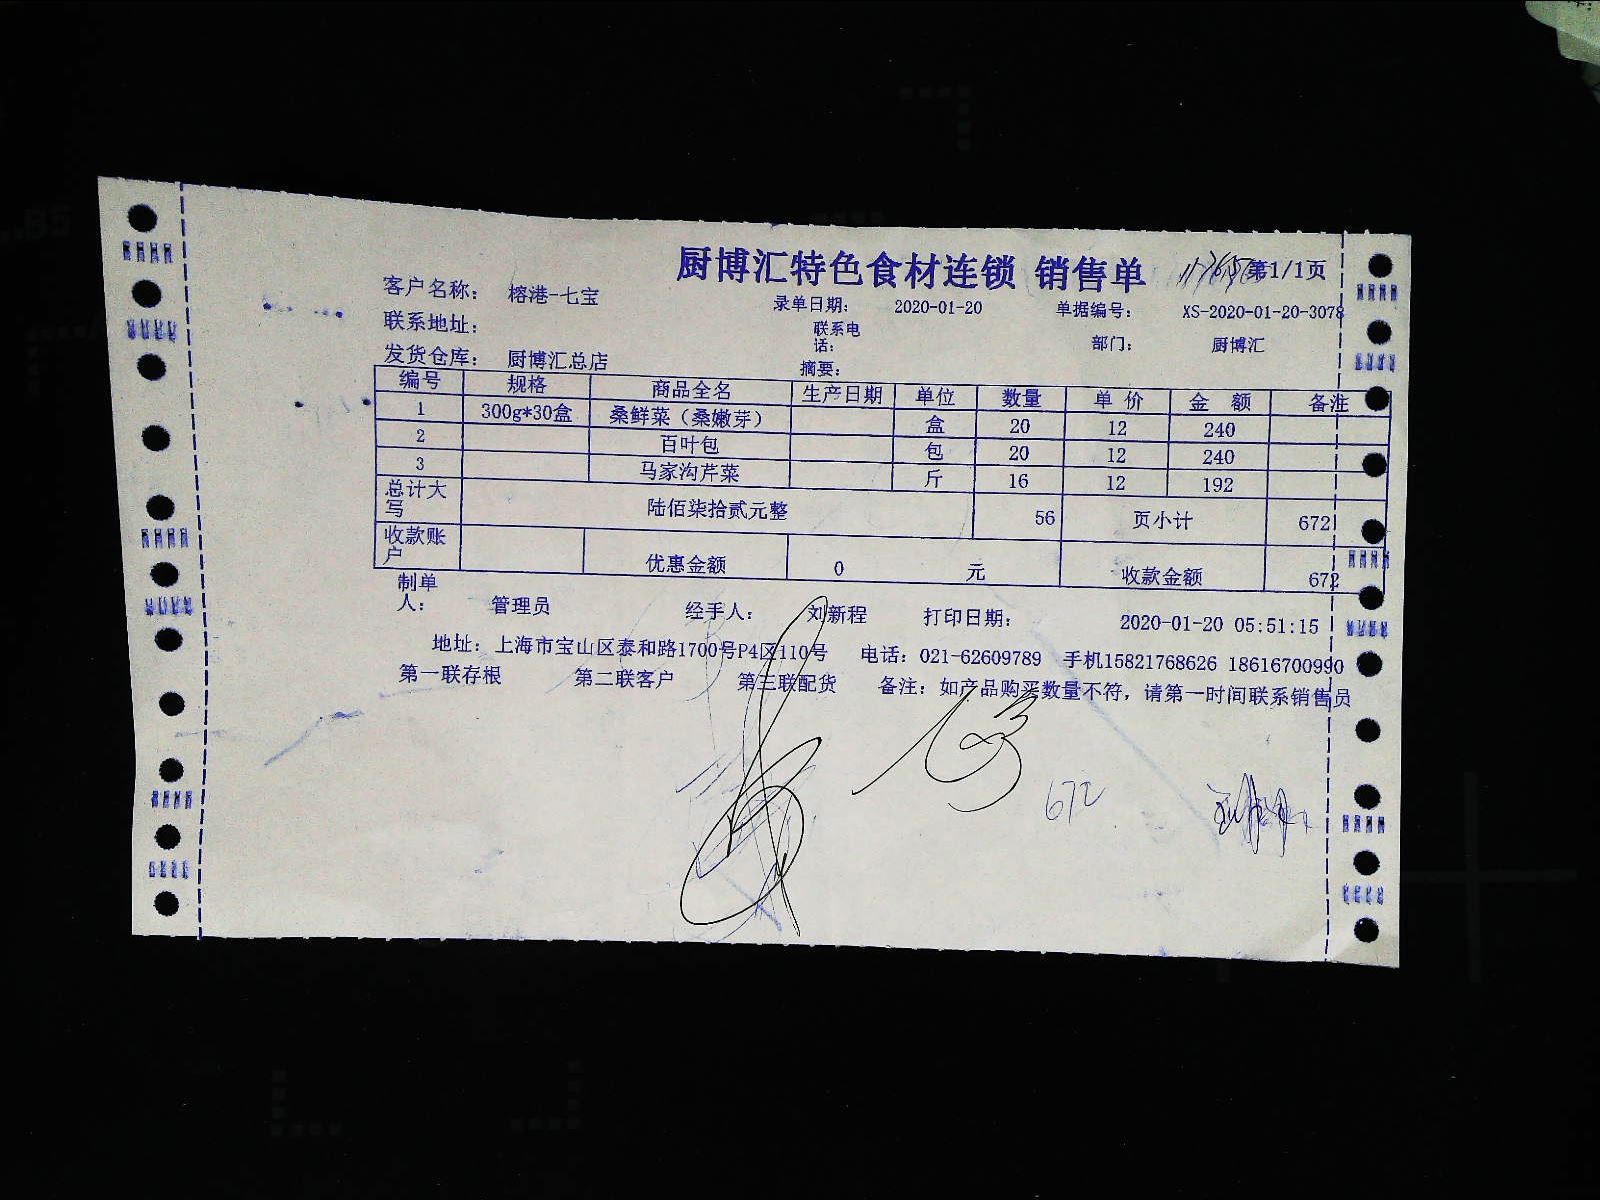 厨博汇特色食材连锁 销售单 第1/1页
客户名称： 榕港-七宝 录单日期： 2020-01-20 单据编号： XS-2020-01-20-3078
联系地址： 联系电话： 部门： 厨博汇
发货仓库： 厨博汇总店 摘要：
编号 规格 商品全名 生产日期 单位 数量 单 价 金 额 备注
1 300g*30盒 桑鲜菜（桑嫩芽） 盒 20 12 240
2 百叶包 包 20 12 240
3 马家沟芹菜 斤 16 12 192
总计大写 陆佰柒拾贰元整 56 页小计 672
收款账户 优惠金额 0 元 收款金额 672
制单人： 管理员 经手人： 刘新程 打印日期： 2020-01-20 05:51:15
地址：上海市宝山区泰和路1700号P4区110号 电话：021-62609789 手机15821768626 18616700990
第一联存根 第二联客户 第三联配货 备注：如产品购买数量不符，请第一时间联系销售员
672